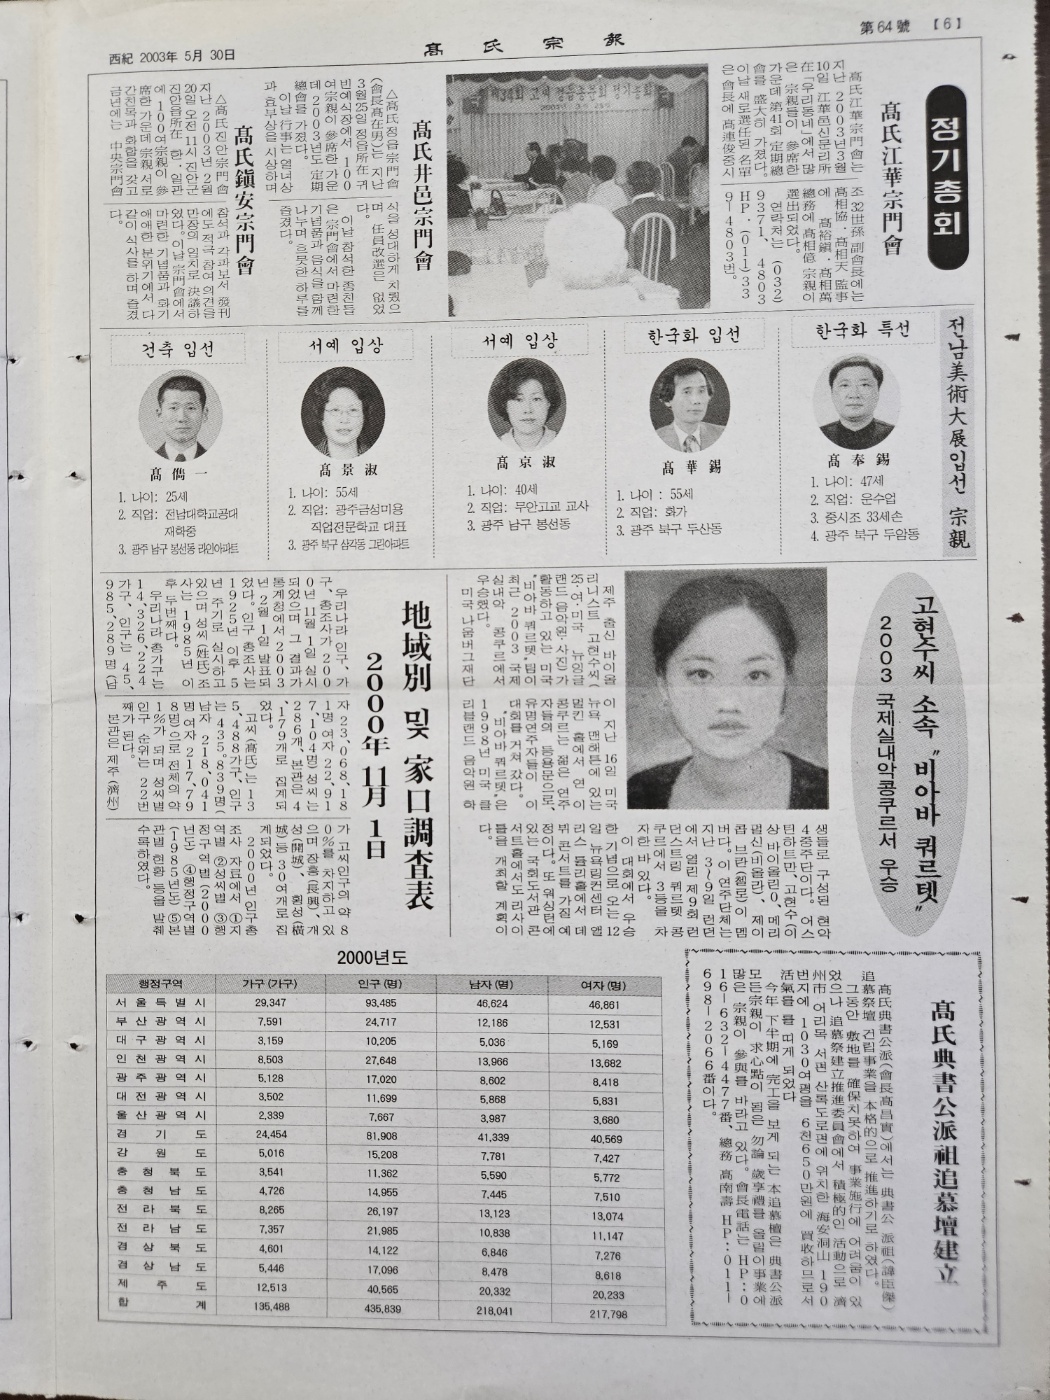 西紀 2003年 5月 30日
高氏宗報
第64號 【6】
정기총회
高氏江華宗門會
高氏江華宗門會는
지난 2003年 3월
10일 江華邑신문리所
在「우리동네」에서 많
은 宗親들이 參席한
가운데 第41회 定期總
會를 盛大히 가졌다.
이날 새로 選任된 名單
은 會長에 高連俊중시
조 32世孫 副會長에는
高相協·高相天 監事
에 高裕鎭·高相萬
總務에 高相億 宗親이
選出되었다.
연락처는 (032)
937ㅣ, 4803
HP·(011)33
9-4803번.
高氏井邑宗門會
△高氏정읍宗門會
(會長高在男)는 지난
3월25일 정읍所在 귀
빈예식장에서 100
여宗親이 參席한 가운
데 2003년도 定期
總會를 가졌다.
이날 行事는 열녀상
과 효부상을 시상하며
식을 성대하게 치뤘으
며, 任員改選은 없었
다.
이날 참석한 종친들
은 宗門會에서 마련한
기념품과 음식을 함께
나누며 흐뭇한 하루를
즐겼다.
高氏鎭安宗門會
△高氏진안宗門會
지난 2003년 2월
20일 오전11시 진안군
진안읍所在 한·일관
에 100여宗親이 參
席한 가운데 宗親 서로
간친목과 화합을 갖고
금년에는 中央宗門會
참석과 각과보서 發刊
에도 적극 참여의견을
만장의 일치로 決議하
였다. 이날 宗門會에서
마련한 기념품과 화기
애애한 분위기에서 다
같이 식사를 하며 즐겼
다.
전남美術大展입선 宗親
한국화 특선
高奉錫
1. 나이: 47세
2. 직업: 운수업
3. 중시조 33세손
4. 광주 북구 두암동
한국화 입선
高華錫
1. 나이 : 55세
2. 직업: 화가
3. 광주 북구 두산동
서예 입상
高京淑
1. 나이: 40세
2. 직업: 무안고교 교사
3. 광주 남구 봉선동
서예 입상
高景淑
1. 나이: 55세
2. 직업: 광주금성미용
직업전문학교 대표
3. 광주 북구 삼각동 그린아파트
건축 입선
高儁一
1. 나이: 25세
2. 직업: 전남대학교공대
재학중
3. 광주 남구 봉선동 라인아파트
고현수씨 소속 "비아바 쿼르텟"
2003 국제실내악콩쿠르서 우승
제주 출신 바이올
리니스트 고현수씨(
25·여·미국 뉴잉글
랜드음악원·사진)가
활동하고 있는 미국
"비아바 쿼르텟"팀이
최근 2003 국제
실내악 콩쿠르에서
우승했다.
미국 나움버그재단
이 지난 16일 미국
뉴욕 맨해튼에 있는
멀킨 홀에서 연 이
콩쿠르는 젊은 연주
자들의 등용문으로,
유명연주자들이 이
대회를 거쳐 갔다.
"비아바 쿼르텟"은
1998년 미국 클
리블랜드 음악원 학
생들로 구성된 현악
4중주단이다. 어스
틴하트만, 고현수(이
상 바이올린0, 메리
펄신(비올라), 제이
콥 브란(첼로)이 멤
버다. 이 연주단체는
지난 3~9일 런던
에서 열린 제9회 런
던스트링 쿼르텟 콩
쿠르에서 3등을 차
자한 바 있다.
이 대회에서 우승
한 기념으로 오는 12
일 뉴욕링컨센터 앨
리스 튤리홀에서 데
뷔 콘서트를 가질 예
정이다. 또 워싱턴에
있는 국회도서관 콘
서트홀에서도 리사이
틀을 개최할 계획이
다.
地域別 및 家口調査表
2000年 11月 1日
우리나라 인구, 가
구, 총조사가 200
0년 11월 1일 실시
되었으며 그 결과가
통계청에서 2003
년 2월 1일 발표되
었다. 인구 총조사는
1925년 이후 5
년 주기로 실시하고
있으며 성씨(姓氏)조
사는 1985년 이
후 두번째다.
우리나라 총가구는
14,326,224
가구, 인구는 45,
985,289명(남
자 23,068,18
1명 여자 22,91
7,104명) 성씨는
286개, 본관은 4
,179개로 집계되
었다.
고씨(高氏)는 13
5,488가구, 인구
는 435,839명(
남자 218,041
명 여자 217,79
8명)으로 전체의 약
1%가 되며 성씨별
인구 순위는 22번
째가 된다.
본관은 제주(濟州)
가 고씨인구의 약 8
0%를 차지하고 있
으며 장흥(長興), 개
성(開城), 횡성(橫
城)등 30여개로 집
계되었다.
2000년 인구총
조사 자료에서 ①지
역별 ②성씨별 ③행
정구역별(2000
년도) ④행정구역별
(1985년도) ⑤본
관별 현황 등을 발췌
수록하였다.
2000년도
행정구역 가구 (가구) 인구 (명) 남자 (명) 여자 (명)
서울특별시 29,347 93,485 46,624 46,861
부산광역시 7,591 24,717 12,186 12,531
대구광역시 3,159 10,205 5,036 5,169
인천광역시 8,503 27,648 13,966 13,682
광주광역시 5,128 17,020 8,602 8,418
대전광역시 3,502 11,699 5,868 5,831
울산광역시 2,339 7,667 3,987 3,680
경기도 24,454 81,908 41,339 40,569
강원도 5,016 15,208 7,781 7,427
충청북도 3,541 11,362 5,590 5,772
충청남도 4,726 14,955 7,445 7,510
전라북도 8,265 26,197 13,123 13,074
전라남도 7,357 21,985 10,838 11,147
경상북도 4,601 14,122 6,846 7,276
경상남도 5,446 17,096 8,478 8,618
제주도 12,513 40,565 20,332 20,233
합계 135,488 435,839 218,041 217,798
高氏典書公派祖追慕壇建立
高氏典書公派(會長高昌實)에서는 典書公 派祖(諱臣傑)
追慕祭壇 건립事業을 本格的으로 推進하기로 하였다.
그동안 敷地를 確保치못하여 事業施行에 어려움이 있
었으나 追慕祭建立推進委員會에서 積極的인 活動으로 濟
州市 어리목 서편 산록도로변에 위치한 海安洞山 190
번지에 1030여평을 6천650만원에 買收하므로서
活氣를 띠게 되었다
今年 下半期에 完工을 보게 되는 本追慕壇은 典書公派
모든宗親이 求心點이 됨은 勿論 歲享禮를 올릴이事業에
많은 宗親이 參與를 바라고 있다. 會長電話는 HP:0
16-632-4477番, 總務 高南壽 HP:011-
698-2066番이다.